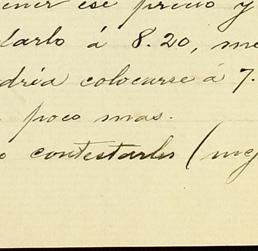 ener ese precio y
darlo á 8.20, me
dria colocarse á 7.
poco mas.
o contestarles (mej